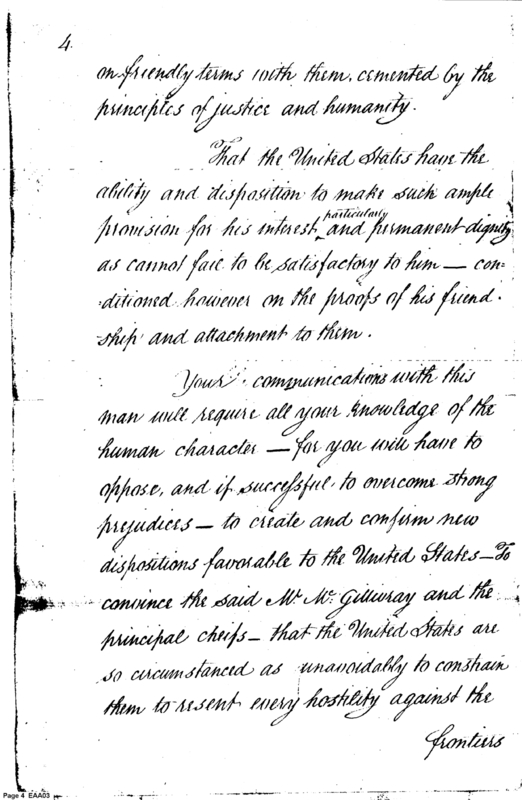 4.
on friendly terms with them, cemented by the
principles of justice and humanity.
That the United States have the
ability and disposition to make such ample
particularly
provision for his interest, and permanent dignity
as cannot fail to be satisfactory to him — con=
=ditioned however on the proofs of his friend.
ship and attachment to them.
Your communications with this
man will require all your knowledge of the
human character — for you will have to
oppose, and if successful to overcome strong
prejudices — to create and confirm new
dispositions favorable to the United States — To
convince the said Mr. Mc. Gillivray and the
principal cheifs — that the United States are
so circumstanced as unavoidably to constrain
them to resent every hostility against the
frontiers
Page 4 EAA03